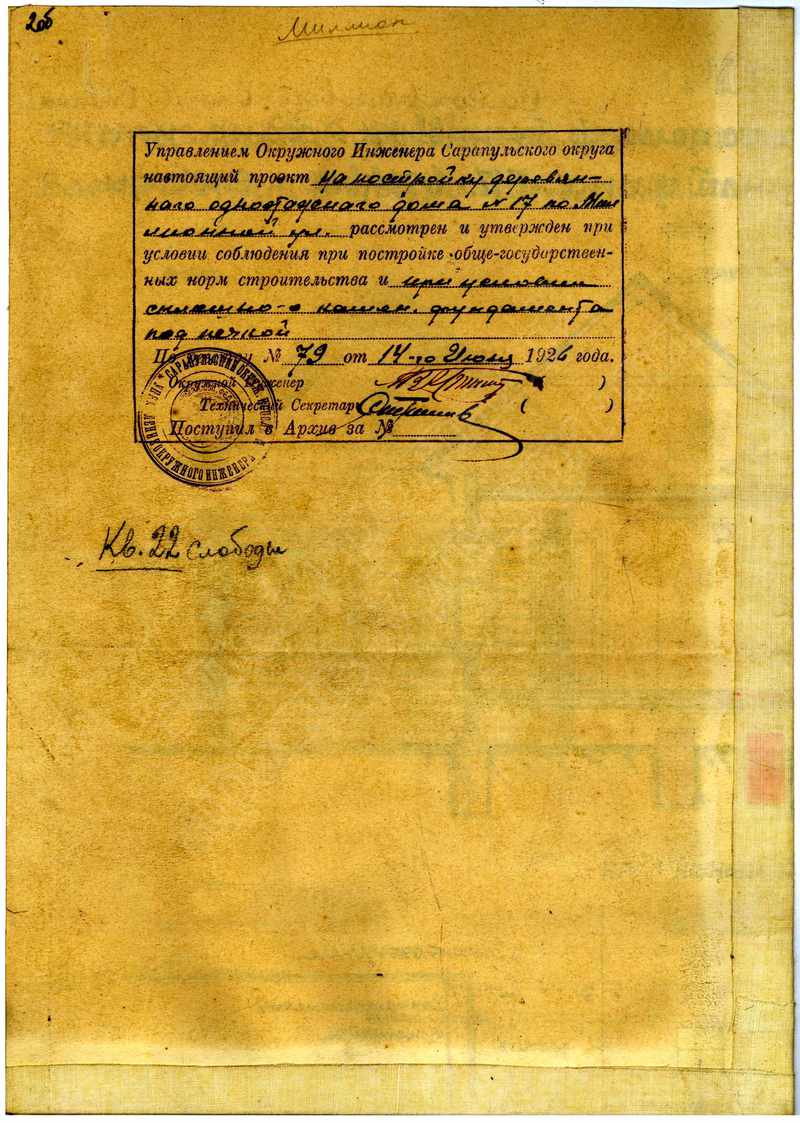 2об
Миллион
Управлением Окружного Инженера Сарапульского округа
настоящий проект на постройку деревян-
наго одноэтажнаго дома № 17 по Мил
лионной ул. рассмотрен и утвержден при
условии соблюдения при постройке обще-государствен-
ных норм строительства и при условии
сплошно-о камен. фундамента
под печкой
По № 79 от 14-го Июня 1926 года.
Окружной Инженер ( )
Технический Секретарь ( )
Поступил в Архив за №
САРАПУЛЬСКИЙ ОКРУЖ. ИСПОЛ.
УПРАВЛЕНИЕ ОКРУЖНОГО ИНЖЕНЕРА
Кв. 22 слободы